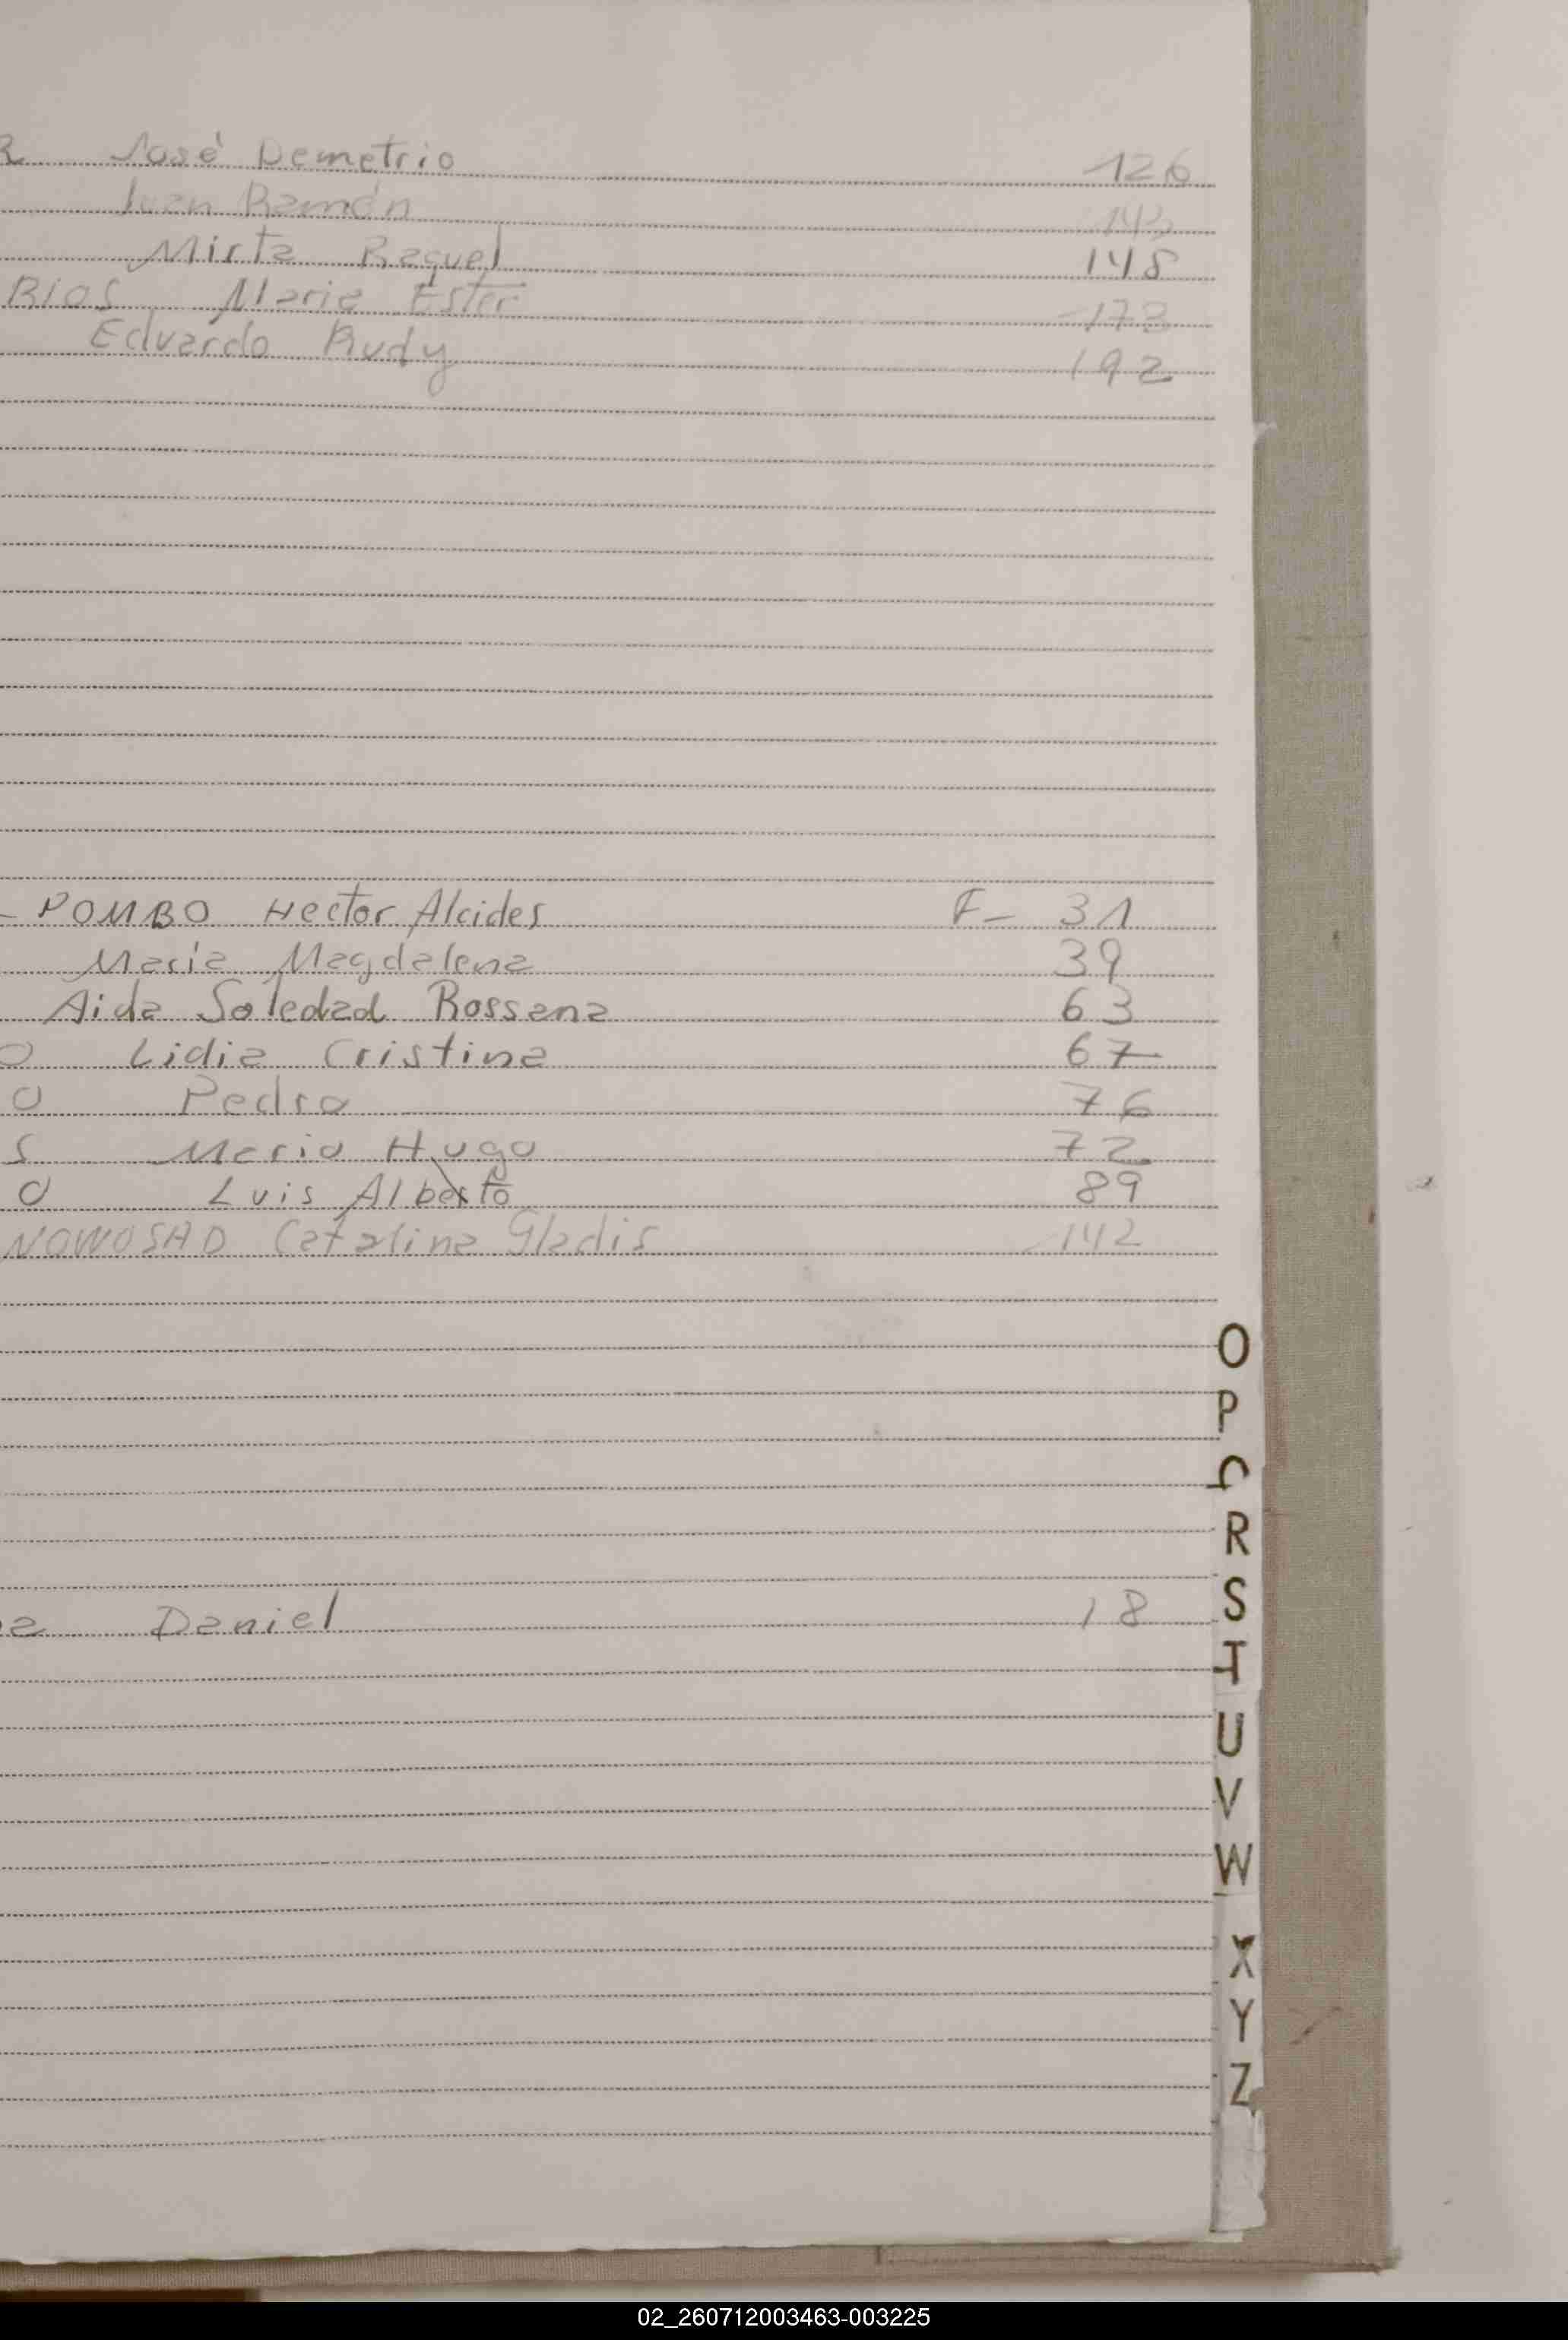 José Demetrio 126
Juan Ramón 143
Mirta Raquel 148
RIOS Maria Ester 173
Eduardo Rudy 192
- POMBO Hector Alcides F- 31
Maria Magdalena 39
Aida Soledad Rossana 63
O Lidia Cristina 67
O Pedro 76
S Mario Hugo 72
O Luis Alberto 89
NOWOSAD Catalina Gladis 142
O
P
R
a Daniel 18
S
T
U
V
W
X
Y
Z
02_260712003463-003225